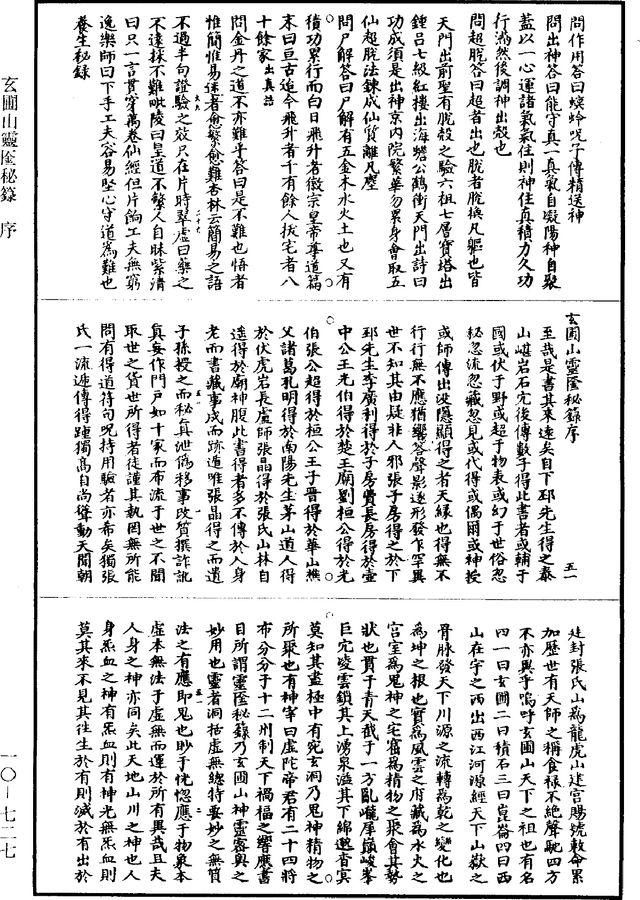 問作用答曰螟蛉呪子傳精送神
問出神答曰龍守真一真氣自凝陽神自聚
蓋以一心運諸氣氣住則神住真積力久功
行滿然後調神出殼也
問超脫答曰超者出也脫者脫換凡軀也皆
天門出前聖有脫殼之驗六祖七層寶塔出
鍾呂七級紅樓出海蟾公鶴衝天門出詩曰
功成須是出神京內院繁華勿累身會取五
仙超脫法鍊成仙質離凡塵
問尸解答曰尸解有五金木水火土也又有
積功累行而白日飛升者徽宗皇帝尊道篇
末曰亘古迨今飛升者千有餘人拔宅者八
十餘家出真誥
問金丹之道不亦難乎答曰是不難也悟者
惟簡惟易迷者愈繁愈難杏林云簡易之語
不過半句證驗之效只在片時翠虛曰藥之
不遠採不難毗陵曰皇道不繁人自昧紫清
曰只一言貫穿萬卷仙經但片餉工夫無窮
逸樂師曰下手工夫容易堅心守道為難也
養生秘錄
玄圃山靈匧秘籙 序
玄圃山靈匧秘籙序
至哉是書其來遠矣自下邳先生得之泰
山嵁岩石穴後傳數子得此書者或輔于
國或伏于野或超于物表或幻于世俗忽
秘忽流忽藏忽見或代得或偶爾或神授
或師傳出沒隱顯得之者天緣也得無不
行行無不應猶響答聲影逐形發乍罕異
世不知其由疑非人邪張子房得之於下
邳先生李廣利得於子房費長房得於壺
中公王先伯得於楚王廟劉桓公得於光
伯張公超得於桓公王子晉得於華山樵
父諸葛孔明得於南陽先生茅山道人得
於伏虎岩長盧師張晶得於張氏山林自
遠得於廟神腹此書得者多不傳於人身
老而書藏事成而跡遁唯張晶得之而遺
子孫授之而秘真泄偽移事改質撰詐訛
真妄作門戶如十家而布流于世之不聞
取世之貨世所得者徒謹其執罔無所能
問有得道符句呪持用驗者亦希矣獨張
氏一流遞傳得踵獨高自尚聳動天聞朝
廷封張氏山為龍虎山建宮賜號敕命累
加歷世有天師之稱食祿不絕聲馳四方
不亦異乎嗚呼玄圃山天下之祖也有名
四一曰玄圃二曰積石三曰崑崙四曰西
山在宇之西出西江河源經天下山嶽之
骨脉發天下川源之流轉為乾之變化也
為坤之根也實為風雲之府藏為水火之
宮室為鬼神之宅窟為精物之聚會其勢
狀也貫于青天截于一方亂巄厜巘峻峯
巨宂凌雲鎖其上湧泉溢其下綿邈杳冥
莫知其盡極中有宛玄洞乃鬼神精物之
所聚也有神宰曰虛陀帝君有二十四將
布分分于十二州制天下禍福之響應書
目所謂靈匧秘籙乃玄圃山神靈密輿之
妙用也靈者洞括虛無總持要妙之無質
法之有應即鬼也眇于恍惚應于物象本
虛本無法于虛無而運於所有異哉且夫
人身之神亦同矣此天地山川之神也人
身炁血之神有炁血則有神光無炁血則
莫其來不見其往生於有則滅於有出於
一〇—七二七